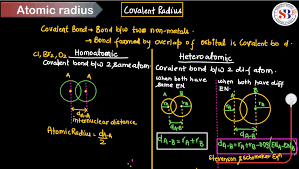 Atomic radius
Covalent Radius
Covalent Bond → Bond b/w two non-metals.
→ Bond formed by overlap of orbital is Covalent bond.
Cl, Br2, O2
Homoatomic
Covalent bond b/w 2 same atom
A A
internuclear distance
Atomic Radius = dA-A/2
Heteroatomic
Covalent bond b/w 2 dif atom
when both have same EN
A B
rA rB
dA-B
dA-B = rA + rB
when both have diff EN
A B
rA rB
dA-B
dA-B = rA + rB - 0.09 (ENA - ENB)